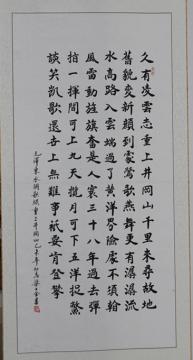 久有凌雲志重上井岡山千里来尋故地
舊貌變新顔到處鶯歌燕舞更有潺潺流
水高路入雲端過了黄洋界險處不須看
風雷動旌旗奮是人寰三十八年過去彈
指一揮間可上九天攬月可下五洋捉鱉
談笑凱歌還世上無難事衹要肯登攀
毛澤東水調歌頭重上井岡山乙未年